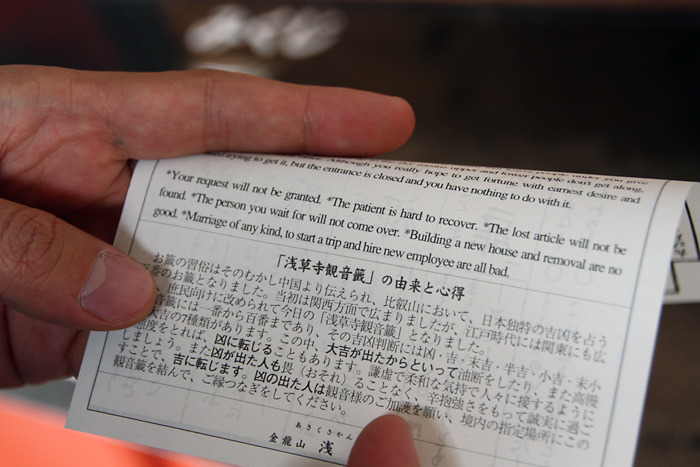 Although you really hope to get fortune with earnest desire and
trying to get it, but the entrance is closed and you have nothing to do with it.
*Your request will not be granted. *The patient is hard to recover. *The lost article will not be
found. *The person you wait for will not come over. *Building a new house and removal are no
good. *Marriage of any kind, to start a trip and hire new employee are all bad.
「浅草寺観音籤」の由来と心得
お籤の習俗はそのむかし中国より伝えられ、比叡山において、日本独特の吉凶を占う
百番のお籤となりました。当初は関西方面で広まりましたが、江戸時代には関東にも広
庶民向けに改められて今日の「浅草寺観音籤」となりました。
音籤には一番から百番まであり、その吉凶判断には凶・吉・末吉・半吉・小吉・末小
大吉の7種類があります。この中、大吉が出たからといって油断をしたり、また高慢
態度をとれば、凶に転じることもあります。謙虚で柔和な気持で人々に接するように
しましょう。また凶が出た人も畏（おそ）れることなく、辛抱強さをもって誠実に過ご
すことで、吉に転じます。凶の出た人は観音様のご加護を願い、境内の指定場所にこの
観音籤を結んで、ご縁つなぎをしてください。
あさくさかん
金龍山 浅